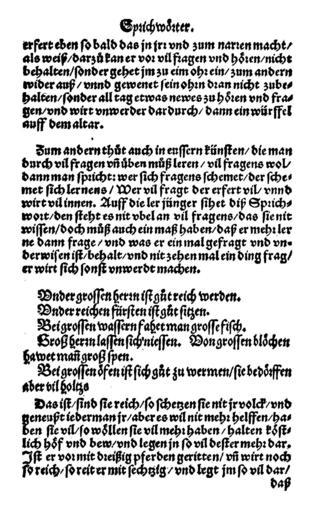 Sprichwörter.
erfert eben so bald das in jrr vnd zum narren macht/
als weiß/ darzů kan er vor vil fragen vnd hören/ nicht
behalten/ sonder gehet jm zu eim ohr ein/ zum andern
wider auß/ vnnd gewenet sein ohrn dran nicht zube-
halten/ sonder all tag etwas newes zů hören vnd fra-
gen/ vnd wirt vnwerder dardurch/ dann ein würffel
auff dem altar.
Zum andern thůt auch in eussern künsten/ die man
durch vil fragen vñ üben můß leren/ vil fragens wol/
dann man spricht: wer sich fragens schemet/ der sche-
met sich lernens/ Wer vil fragt der erfert vil/ vnnd
wirt vil innen. Auff die ler jünger sihet diß Sprich-
wort/ den steht es nit vbel an vil fragens/ das sie nit
wissen/ doch můß auch ein maß haben/ daß er mehr ler
ne dann frage/ vnd was er ein mal gefragt vnd vn-
derwisen ist/ behalt/ vnd nit zehen mal ein ding frag/
er wirt sich sonst vnwerdt machen.
Vnder grossen herrn ist gůt reich werden.
Vnder reichen fürsten ist gůt sitzen.
Bei grossen wassern fahet man grosse fisch.
Groß herrn lassen sich niessen. Von grossen blöchen
hawet mañ groß spen.
Bei grossen öfen ist sich gůt zů wermen/ sie bedöffen
aber vil holtzs
Das ist/ sind sie reich/ so schetzen sie nit jr volck/ vnd
geneußt iederman jr/ aber es wil nit mehr helffen/ ha-
ben sie vil/ so wöllen sie vil mehr haben/ halten köst-
lich höf vnd bew/ vnd legen jn so vil dester mehr dar.
Ist er vor mit dreißig pferden geritten/ vñ wirt noch
so reich/ so reit er mit sechtzig/ vnd legt jm so vil dar/
daß